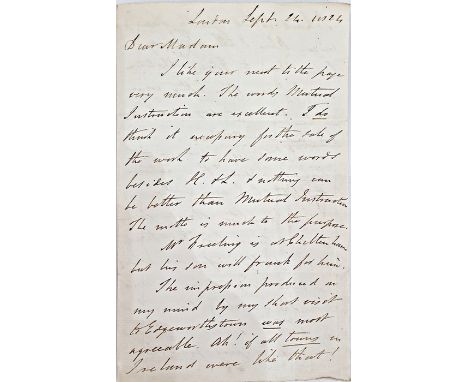 London Sept. 24. 1824
Dear Madam
I like your next to the page
very much. The words Mutual
Instruction are excellent. I do
think it necessary for the sale of
the work to have some words
besides H. & L. & nothing can
be better than Mutual Instruction
The motto is much to the purpose.
Mr Freeling is at Cheltenham
but his son will frank for him.
The impression produced on
my mind by my short visit
to Edgeworthstown was most
agreeable. Ah! if all towns in
Ireland were like that!